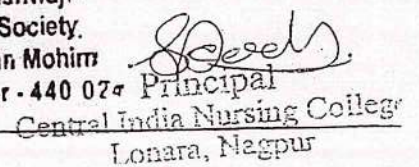 Society.
n Mohim
r - 440 024 Principal
Central India Nursing College
Lonara, Nagpur